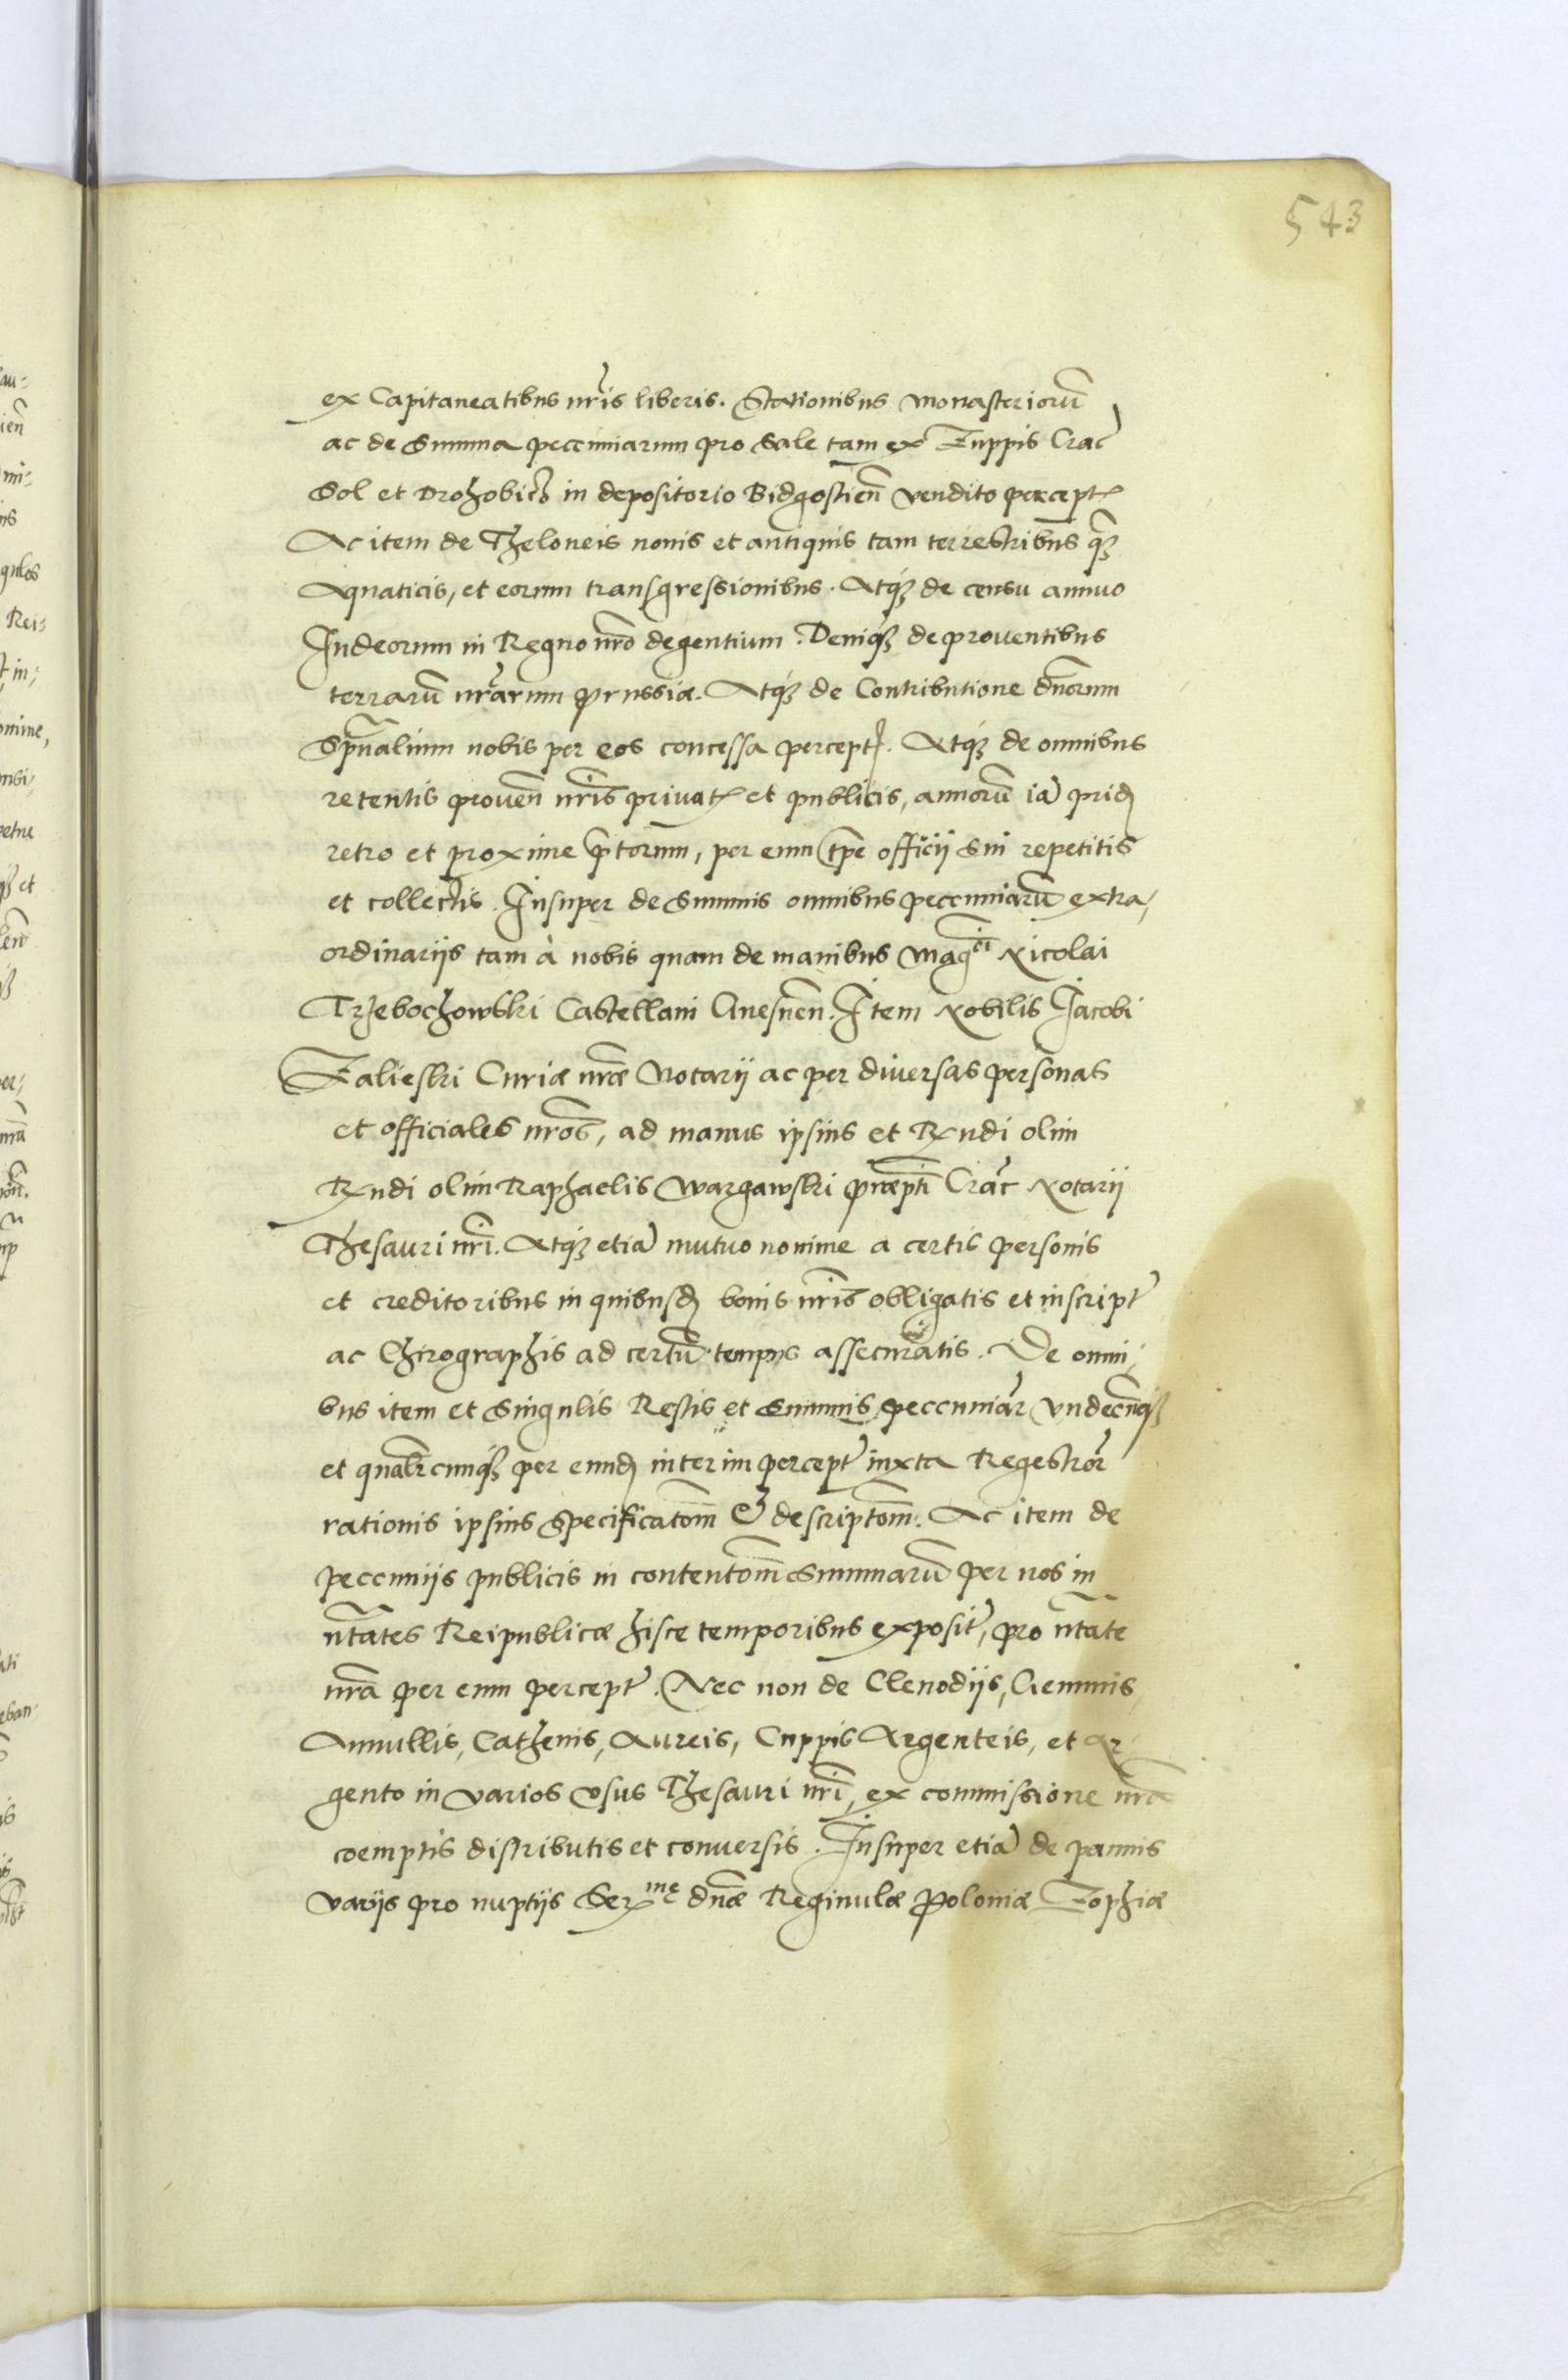 543
ex Capitaneatibus nr̃is liberis. Stationibus monasteriorũ
ac de Summa pecuniarum pro sale tam ex Zuppis Crac̃
Sol et Drohobicz in depositorio Bidgostieñ vendito percept
Ac item de Theloneis novis et antiquis tam terrestribus q̃z
Aquaticis, et eorum transgressionibus. Atq₃ de censu annuo
Iudeorum in Regno nr̃o degentium. Deniq₃ de proventibus
terrarũ nr̃arum Prussiæ. Atq₃ de Contributione dñorum
Spũalium nobis per eos concessa percept. Atq₃ de omnibus
retentis proveñ nr̃is privat et publicis, annorũ iã prid
retro et proxime p̃torum, per eum tp̃e officii sui repetitis
et collectis. Insuper de Summis omnibus pecuniarũ extra,
ordinariis tam à nobis quam de manibus Mag^ci Nicolai
Trzebochowski Castellani Gnesneñ. Item Nobilis Jacobi
Zalieski Curiæ nr̃æ Notarii ac per diversas personas
et officiales nr̃os, ad manus ipsius et Rndi olim
Rndi olim Raphaelis Wargawski præpti Crac̃ Notarii
Thesauri nr̃i. Atq₃ etiã mutuo nomine a certis personis
et creditoribus in quibusd bonis nr̃is obligatis et inscript
ac Chirographis ad certũ tempus assecuratis. De omni,
bus item et Singulis Restis et Summis pecuniar̃ vndecũq₃
et qualr̃cunq₃ per eund interim percept iuxta Regestror̃
rationis ipsius specificatom̃ & descriptom̃. Ac item de
pecuniis publicis in contentom̃ Summarũ per nos in
nt̃ates Reipublicæ hisce temporibus exposit, pro nt̃ate
nr̃a per eum percept. Nec non de Clenodiis, Gemmis
Annullis, Cathenis, Aureis, Cuppis Argenteis, et Ar
gento in varios vsus Thesauri nr̃i, ex commissione nr̃a
coemptis distributis et conversis. Insuper etiã de pannis
variis pro nuptiis Ser^me dñæ Reginulæ Poloniæ Zophiæ